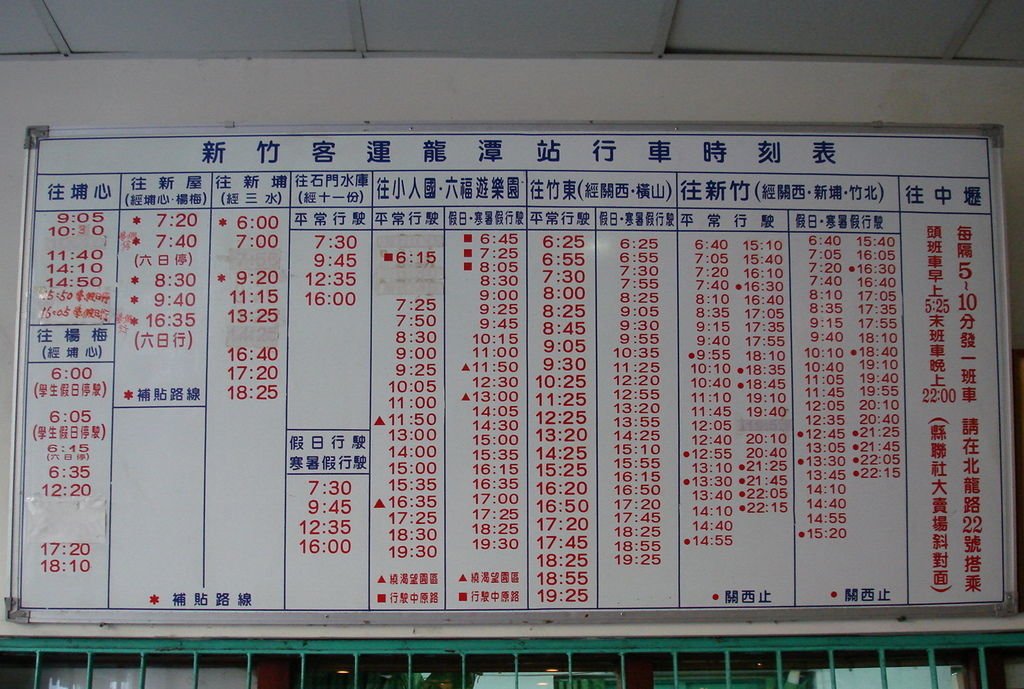 新竹客運龍潭站行車時刻表
往埔心
9:05
11:40
14:10
14:50
往楊梅
(經埔心)
6:00
(學生假日停駛)
6:05
(學生假日停駛)
6:15
(六日停)
6:35
12:20
17:20
18:10
往新屋
(經埔心·楊梅)
* 7:20
* 7:40
(六日停)
* 8:30
* 9:40
* 16:35
(六日行)
*補貼路線
往新埔
(經三水)
* 6:00
7:00
* 9:20
11:15
13:25
16:40
17:20
18:25
* 補貼路線
往石門水庫
(經十一份)
平常行駛
7:30
9:45
12:35
16:00
假日行駛
寒暑假行駛
7:30
9:45
12:35
16:00
往小人國·六福遊樂園
平常行駛
■6:15
7:25
7:50
8:30
9:00
9:25
10:05
11:00
▲11:50
13:00
14:00
15:00
15:35
▲16:35
17:25
18:30
19:30
▲繞渴望園區
■行駛中原路
假日·寒暑假行駛
■ 6:45
■ 7:25
■ 8:05
8:30
9:00
9:25
9:45
10:15
▲11:00
▲11:50
12:30
▲13:00
14:05
14:30
15:00
15:35
16:15
16:35
17:00
17:25
18:25
19:30
▲繞渴望園區
■行駛中原路
往竹東(經關西·橫山)
平常行駛
6:25
6:55
7:30
8:00
8:25
8:45
9:05
9:30
10:25
11:25
12:25
13:20
14:25
15:25
16:20
16:50
17:20
17:45
18:25
18:55
19:25
假日·寒暑假行駛
6:25
6:55
7:30
7:55
8:25
9:05
9:55
10:35
11:25
12:20
12:55
13:20
14:25
15:10
15:55
16:15
16:50
17:20
17:45
18:25
18:55
19:25
往新竹(經關西·新埔·竹北)
平常行駛
6:40 15:10
7:05 15:40
7:20 16:10
7:40 ●16:30
8:10 16:40
8:35 17:05
9:15 17:35
9:40 17:55
●9:55 18:10
10:10 ●18:35
10:40 ●18:45
11:10 19:10
11:45 19:40
12:05
12:40 20:10
●12:55 20:40
13:10 ●21:25
●13:30 ●21:45
13:40 ●22:05
14:10 ●22:15
14:40
●14:55
●關西止
假日·寒暑假行駛
6:40 15:40
7:05 16:05
7:20 ●16:30
7:40 16:40
8:10 17:05
8:35 17:35
9:15 17:55
9:40 18:10
10:10 ●18:40
10:40 19:10
11:05 19:40
11:45 19:55
12:05 20:10
12:35 20:40
●12:45 ●21:25
13:05 ●21:45
●13:30 ●22:05
13:45 ●22:15
14:10
14:40
14:55
●15:20
●關西止
往中壢
每隔5~10分發一班車 請在北龍路22號搭乘
頭班車早上5:25末班車晚上22:00(縣聯社大賣場斜對面)